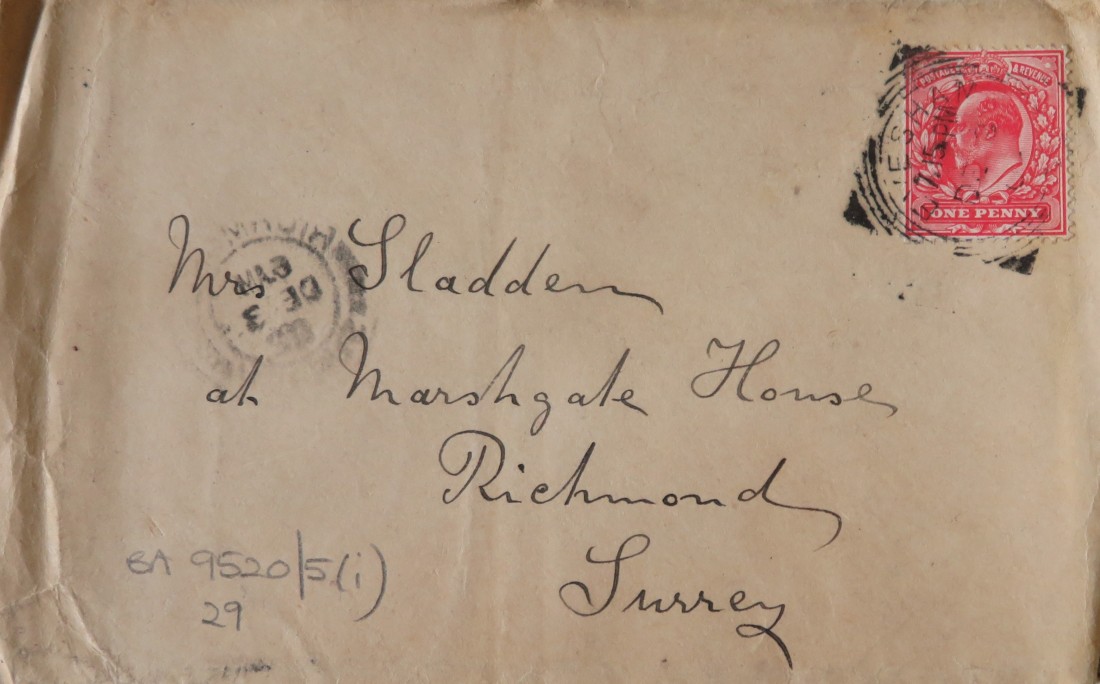 POSTAGE & REVENUE
7.15 PM
ONE PENNY
Mrs Sladden
at Marshgate House
Richmond
Surrey
DE 3
BA 9520/5(i)
29